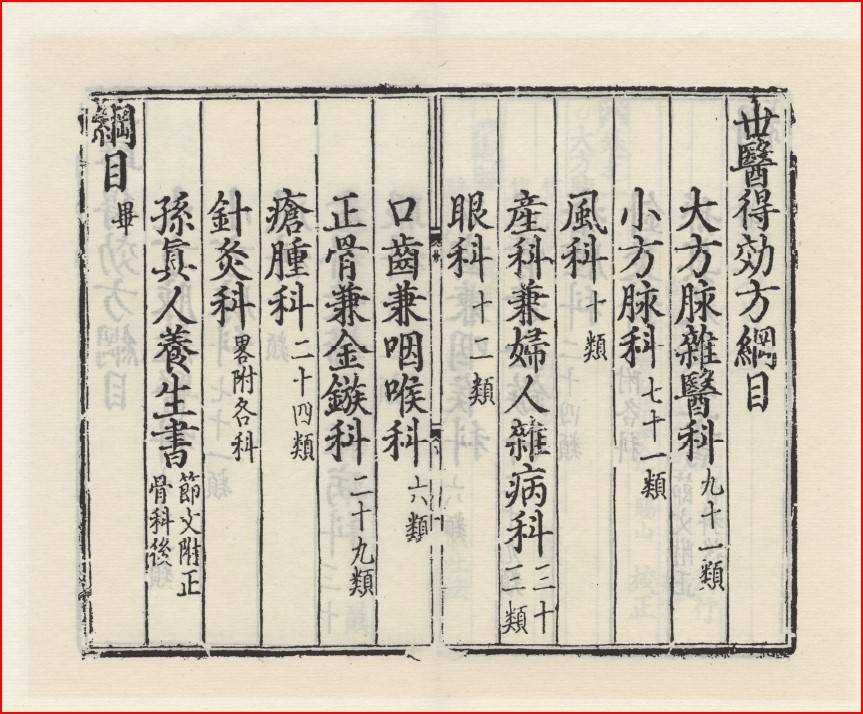 丗醫得効方綱目
大方脉雜醫科 九十一類
小方脉科 七十一類
風科 十類
産科兼婦人雜病科 三十三類
眼科 十二類
口齒兼咽喉科 六類
正骨兼金鏃科 二十九類
瘡腫科 二十四類
針灸科 畧附各科
孫眞人養生書 節文附正骨科後
綱目 畢